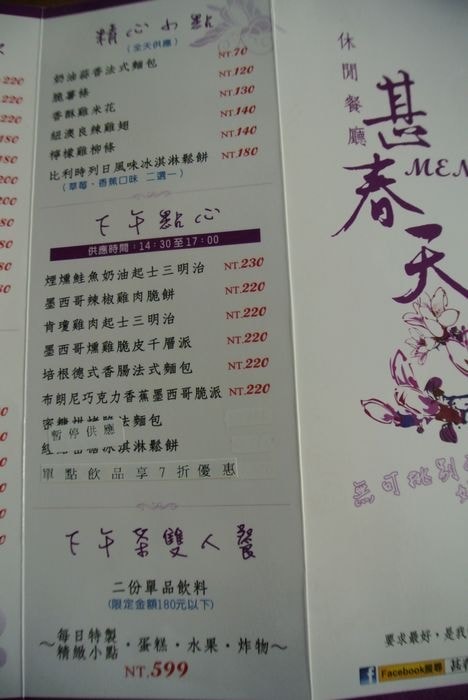 220
220
220
180
180
200
200
精心小點
(全天供應)
奶油蒜香法式麵包 NT.70
脆薯條 NT.120
香酥雞米花 NT.130
紐澳良辣雞翅 NT.140
檸檬雞柳條 NT.140
比利時列日風味冰淇淋鬆餅 NT.180
(草莓、香蕉口味 二選一)
下午點心
供應時間：14:30至17:00
煙燻鮭魚奶油起士三明治 NT.230
墨西哥辣椒雞肉脆餅 NT.220
肯瓊雞肉起士三明治 NT.220
墨西哥燻雞脆皮千層派 NT.220
培根德式香腸法式麵包 NT.220
布朗尼巧克力香蕉墨西哥脆派 NT.220
法麵包
暫停供應
冰淇淋鬆餅
單點飲品享7折優惠
下午茶雙人餐
二份單品飲料
(限定金額180元以下)
～每日特製
精緻小點
・蛋糕・水果・炸物～
NT.599
休閒餐廳
甚春天
MEN
無可挑剔
要求最好，是我
Facebook搜尋